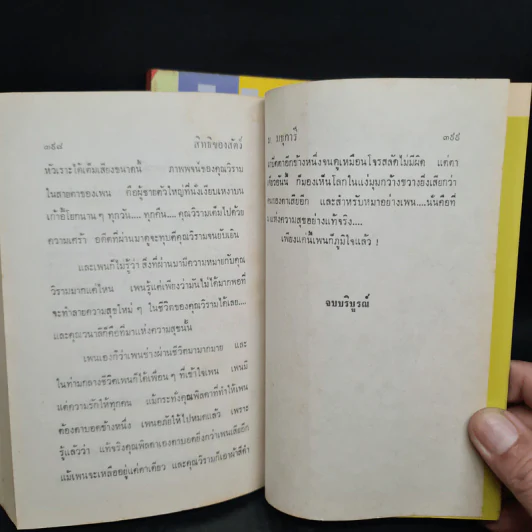 ๓๙๘ สิทธิของสัตว์
หัวเราะได้เต็มเสียงขนาดนี้ ภาพพจน์ของคุณวิราม
ในสายตาของเพน คือผู้ชายตัวใหญ่ที่นั่งเงียบเหงาบน
เก้าอี้โยกนาน ๆ ทุกวัน.... ทุกคืน.... คุณวิรามเต็มไปด้วย
ความเศร้า อดีตที่ผ่านมาดูจะทุบตีคุณวิรามจนยับเยิน
และเพนก็ไม่รู้ว่า สิ่งที่ผ่านมามีความหมายกับคุณ
วิรามมากแค่ไหน เพนรู้แต่เพียงว่ามันไม่ได้มากพอที่
จะทำลายความสุขใหม่ ๆ ในชีวิตของคุณวิรามได้เลย....
และคุณวนาลีก็คือที่มาแห่งความสุขนั้น
เพนเองก็ว่าเพนช่างผ่านชีวิตมามากมาย และ
ในท่ามกลางชีวิตเพนก็ได้เพื่อน ๆ ที่เข้าใจเพน เพนมี
แต่ความรักให้ทุกคน แม้กระทั่งคุณพิลดาที่ทำให้เพน
ต้องตาบอดข้างหนึ่ง เพนอภัยให้ไปหมดแล้ว เพราะ
รู้แล้วว่า แท้จริงคุณพิลดาเองตาบอดยิ่งกว่าเพนเสียอีก
แม้เพนจะเหลืออยู่แค่ตาเดียว และคุณวิรามก็เอาผ้าสีดำ
มยุกาวี ๓๙๙
ตาอีกข้างหนึ่งจนดูเหมือนโจรสลัดไม่มีผิด แต่ตา
ก็มองเห็นโลกในแง่มุมกว้างขวางยิ่งเสียกว่า
เสียอีก และสำหรับหมาอย่างเพน....นั่นคือที่
แห่งความสุขอย่างแท้จริง....
เพียงแค่นี้เพนก็ภูมิใจแล้ว !
จบบริบูรณ์